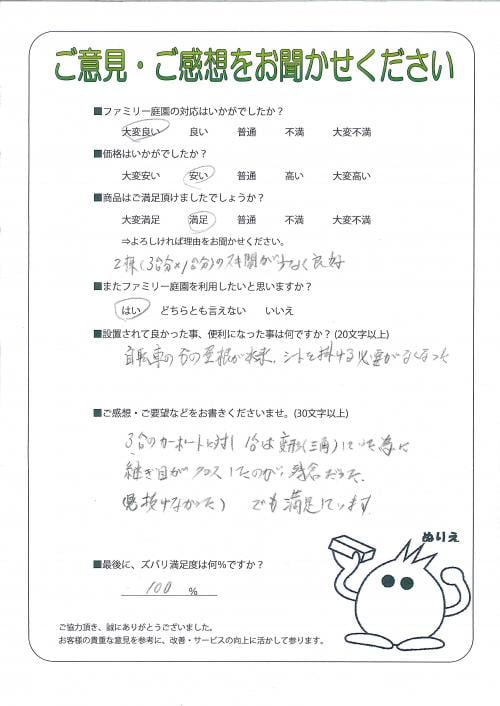 ご意見・ご感想をお聞かせください
■ファミリー庭園の対応はいかがでしたか？
大変良い 良い 普通 不満 大変不満
■価格はいかがでしたか？
大変安い 安い 普通 高い 大変高い
■商品はご満足頂けましたでしょうか？
大変満足 満足 普通 不満 大変不満
⇒よろしければ理由をお聞かせください。
2棟(3台分×1台分)のスキ間が少なく良好
■またファミリー庭園を利用したいと思いますか？
はい どちらとも言えない いいえ
■設置されて良かった事、便利になった事は何ですか？(20文字以上)
自転車の分の屋根が出来、シートを掛ける必要がなくなった
■ご感想・ご要望などをお書きくださいませ。(30文字以上)
3台のカーポートに対し 1台は変形(三角)していた為に
継ぎ目がクロスしたのが、残念だった
でも満足しています
■最後に、ズバリ満足度は何％ですか？
100 %
ぬりえ
ご協力頂き、誠にありがとうございました。
お客様の貴重な意見を参考に、改善・サービスの向上に活かして参ります。